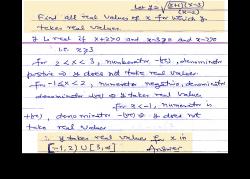 let y = √((x+1)(x-3)/(x-2))
Find all real values of x for which y
takes real values.
y is real if x+2>0 and x-3≥0 and x-2>0
i.e. x≥3
for 2<x<3, numerator -ve, denominator
positive ⇒ y does not take real values.
for -1≤x<2, numerator negative, denominator
⇒ y takes real values
for x<-1, numerator is
+ve, denominator -ve ⇒ y does not
take real values
∴ y takes real values for x in
[-1, 2) ∪ [3, ∞) Answer